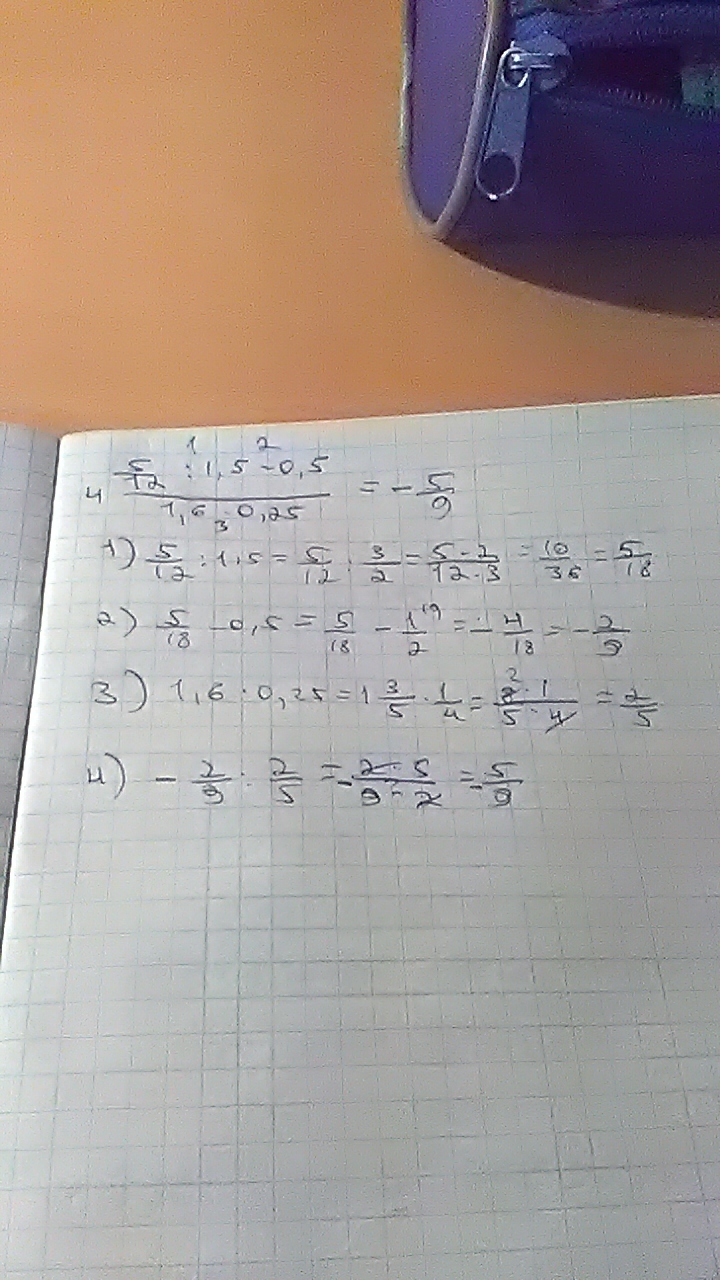 1 2
5/12 : 1,5 - 0,5
4 ———— = - 5/9
1,6 · 0,25
3
1) 5/12 : 1,5 = 5/12 : 3/2 = 5·2/12·3 = 10/36 = 5/18
2) 5/18 - 0,5 = 5/18 - 1/2 = - 4/18 = - 2/9
3) 1,6 · 0,25 = 1 3/5 · 1/4 = 8·1/5·4 = 2/5
4) - 2/9 : 2/5 = - 2·5/9·2 = - 5/9